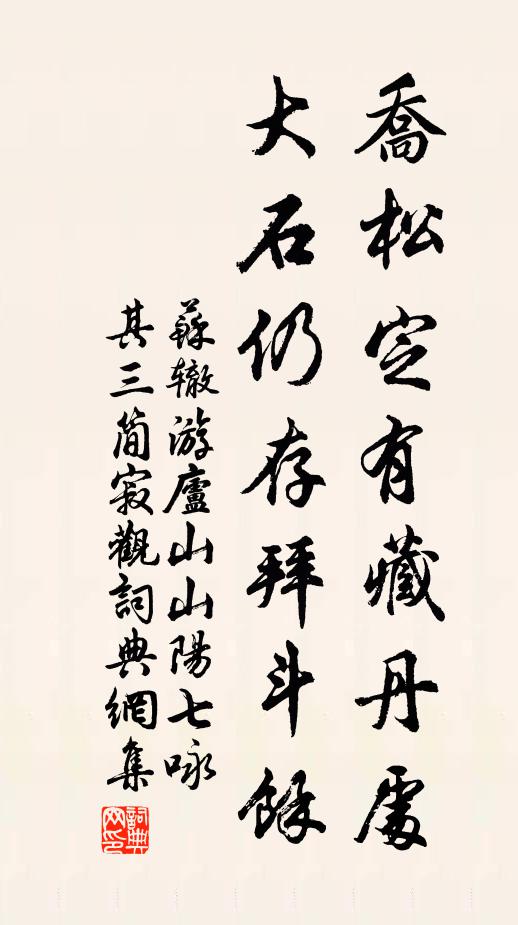 喬松定有藏丹處
大石仍存拜斗餘
蘇轍游廬山山陽七咏
其三簡寂觀詞典網集
詞典
网印